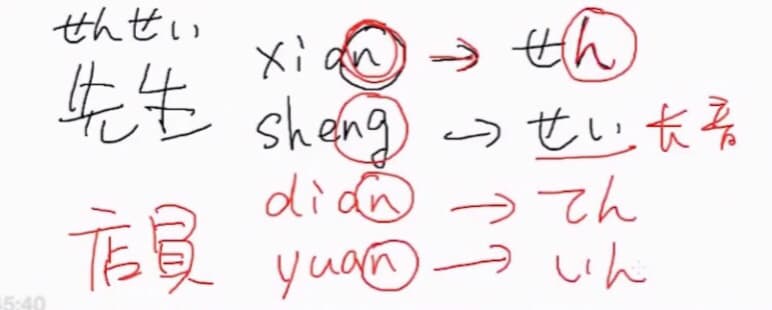 せんせい
先生 xian → せん
sheng → せい 长音
dian → てん
店員 yuan → いん
5:40